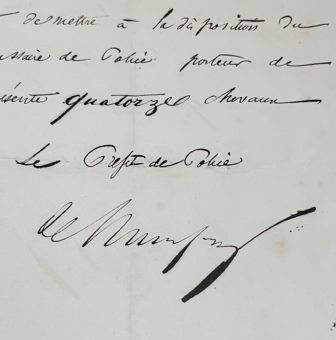 de mettre à la disposition du
ssaire de Police porteur de
ésente quatorze chevaux
Le Préfet de Police